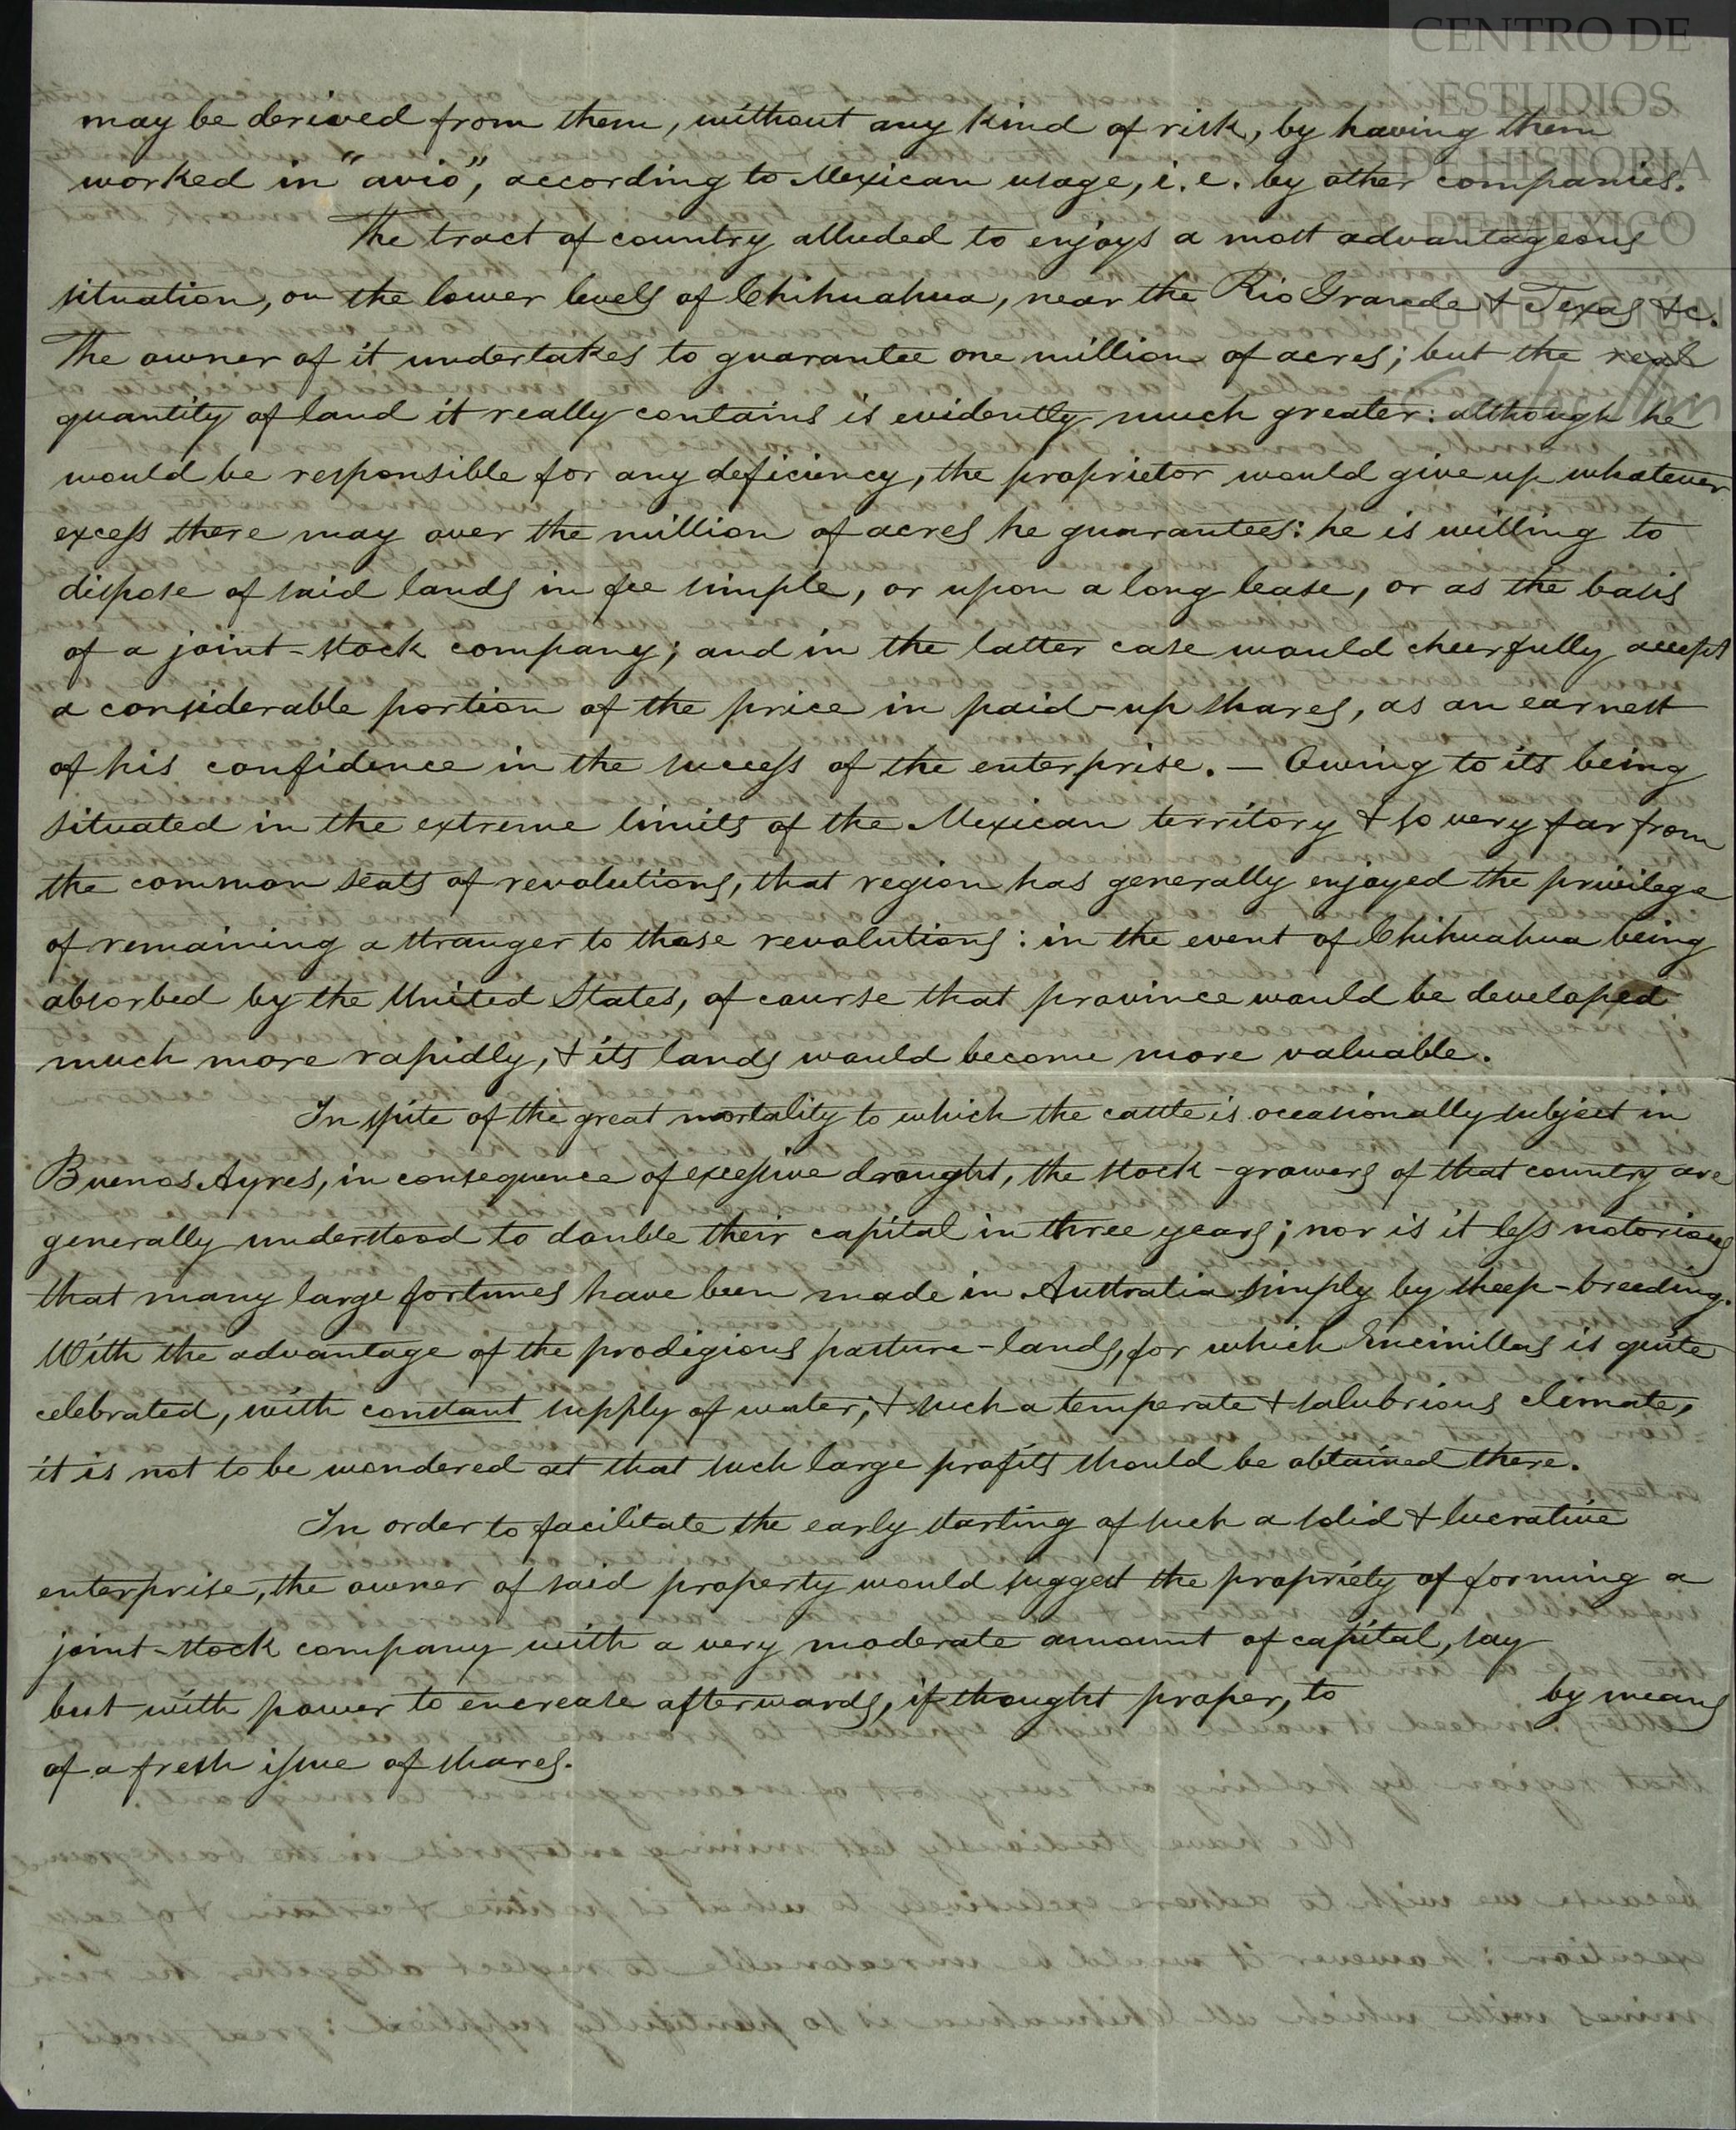 CENTRO DE
ESTUDIOS
DE HISTORIA
DE MEXICO
FUNDACIÓN
Carlos Slim
may be derived from them, without any kind of risk, by having them
worked in "avio", according to Mexican usage, i.e. by other companies.
The tract of country alluded to enjoys a most advantageous
situation, on the lower levels of Chihuahua, near the Rio Grande & Texas &c.
The owner of it undertakes to guarantee one million of acres; but the real
quantity of land it really contains is evidently much greater: although he
would be responsible for any deficiency, the proprietor would give up whatever
excess there may over the million of acres he guarantees: he is willing to
dispose of said lands in fee simple, or upon a long lease, or as the basis
of a joint-stock company; and in the latter case would cheerfully accept
a considerable portion of the price in paid-up shares, as an earnest
of his confidence in the success of the enterprise. — Owing to its being
situated in the extreme limits of the Mexican territory & so very far from
the common seats of revolutions, that region has generally enjoyed the privilege
of remaining a stranger to those revolutions: in the event of Chihuahua being
absorbed by the United States, of course that province would be developed
much more rapidly, & its lands would become more valuable.
In spite of the great mortality to which the cattle is occasionally subject in
Buenos Ayres, in consequence of excessive drought, the stock-growers of that country are
generally understood to double their capital in three years; nor is it less notorious
that many large fortunes have been made in Australia simply by sheep-breeding.
With the advantage of the prodigious pasture-lands, for which Encinillas is quite
celebrated, with constant supply of water, & such a temperate & salubrious climate,
it is not to be wondered at that such large profits should be obtained there.
In order to facilitate the early starting of such a solid & lucrative
enterprise, the owner of said property would suggest the propriety of forming a
joint-stock company with a very moderate amount of capital, say
but with power to encrease afterwards, if thought proper, to by means
of a fresh issue of shares.